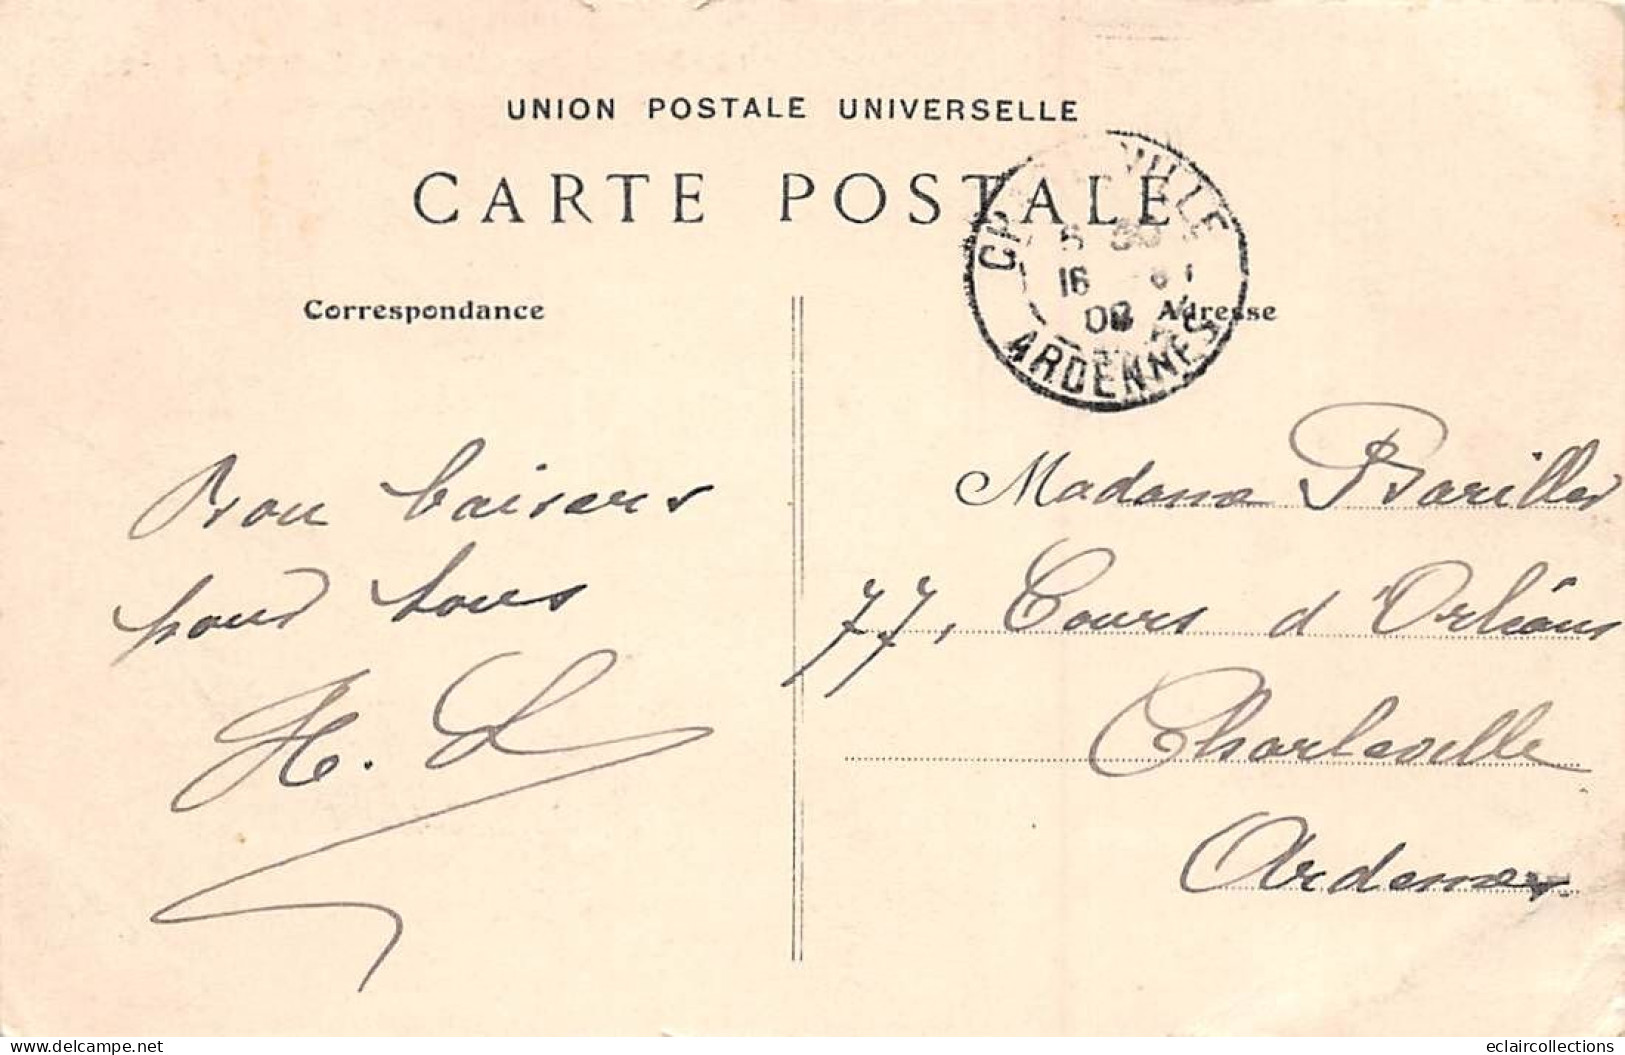 UNION POSTALE UNIVERSELLE
CARTE POSTALE
CHARLEVILLE
16
08
ARDENNES
Correspondance
Adresse
Bon baisers
pour tous
H. L.
Madame Barillet
77, Cours d'Orléans
Charleville
Ardennes.
delcampe.net
eclaircollections